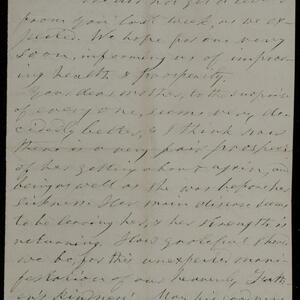 We did not get a letter
from you last week, as we ex-
pected. We hope for one very
soon, informing us of improv-
ing health & prosperity.
Your dear mother, to the surprise
of every one, seems very de-
cidedly better, & I think now
there is a very fair prospect
of her getting about again, and
being as well as she was before her
sickness. Her main disease seems
to be leaving her, & her strength is
returning. How grateful should
we be, for this unexpected mani-
festation of our heavenly Fath-
er's kindness! May his